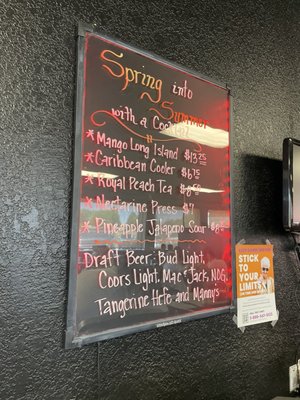 Spring into
Summer
with a Cocktail
* Mango Long Island $13.25
* Caribbean Cooler $6.75
* Royal Peach Tea $8.50
* Nectarine Press $7
* Pineapple Jalapeno Sour $8.50
Draft Beer: Bud Light,
Coors Light, Mac & Jack, NDG,
Tangerine Hefe and Manny's
STICK
TO YOUR
LIMITS